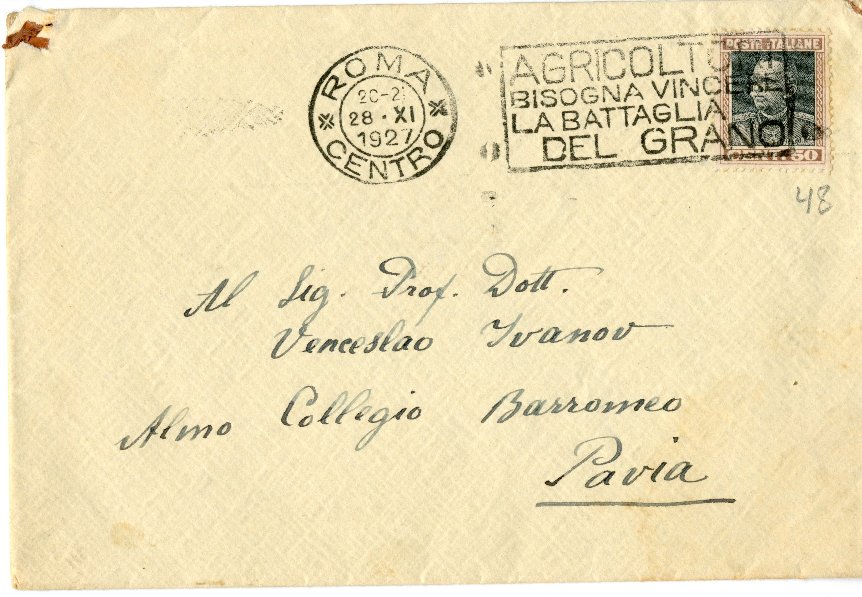 ROMA
20-2
28 · XI
1927
CENTRO
AGRICOLTO
BISOGNA VINCERE
LA BATTAGLIA
DEL GRANO!
POSTE ITALIANE
50
48
Al Sig. Prof. Dott.
Venceslao Ivanov
Almo Collegio Barromeo
Pavia